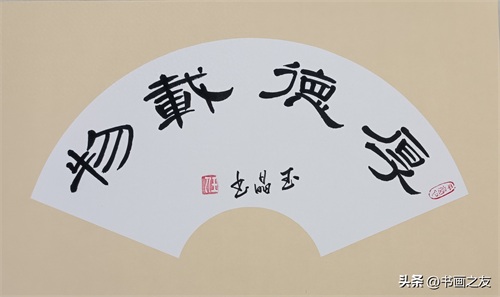 厚德載物
玉晶书
头条 @书画之友